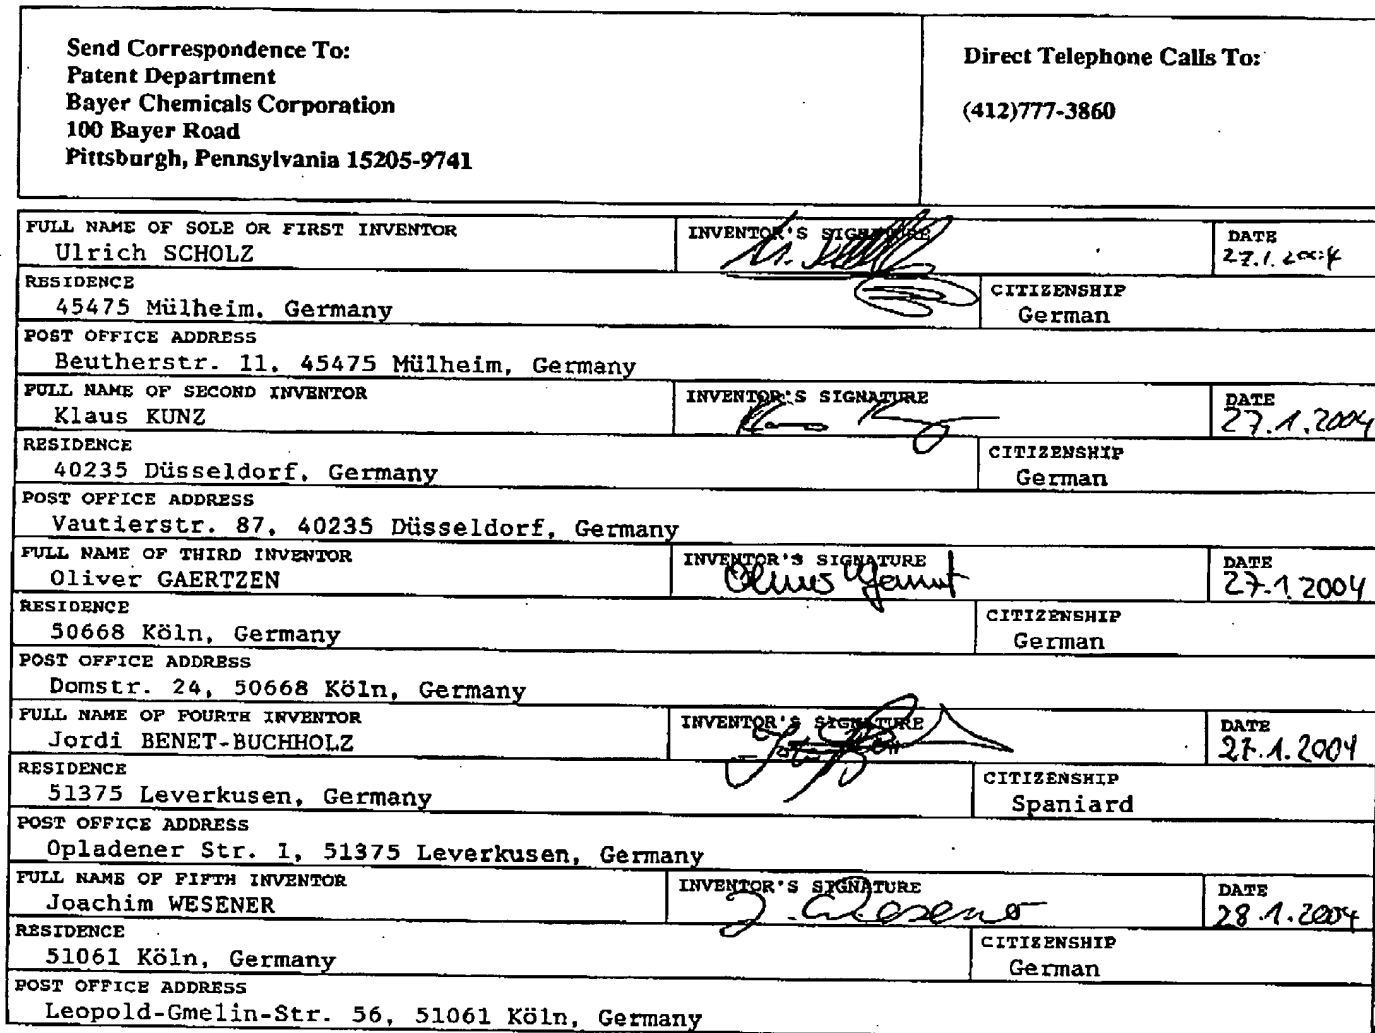 Send Correspondence To:
Patent Department
Bayer Chemicals Corporation
100 Bayer Road
Pittsburgh, Pennsylvania 15205-9741
Direct Telephone Calls To:
(412)777-3860
FULL NAME OF SOLE OR FIRST INVENTOR
Ulrich SCHOLZ
INVENTOR'S SIGNATURE
DATE
27.1.2004
RESIDENCE
45475 Mülheim, Germany
CITIZENSHIP
German
POST OFFICE ADDRESS
Beutherstr. 11, 45475 Mülheim, Germany
FULL NAME OF SECOND INVENTOR
Klaus KUNZ
INVENTOR'S SIGNATURE
DATE
27.1.2004
RESIDENCE
40235 Düsseldorf, Germany
CITIZENSHIP
German
POST OFFICE ADDRESS
Vautierstr. 87, 40235 Düsseldorf, Germany
FULL NAME OF THIRD INVENTOR
Oliver GAERTZEN
INVENTOR'S SIGNATURE
DATE
27.1.2004
RESIDENCE
50668 Köln, Germany
CITIZENSHIP
German
POST OFFICE ADDRESS
Domstr. 24, 50668 Köln, Germany
FULL NAME OF FOURTH INVENTOR
Jordi BENET-BUCHHOLZ
INVENTOR'S SIGNATURE
DATE
27.1.2004
RESIDENCE
51375 Leverkusen, Germany
CITIZENSHIP
Spaniard
POST OFFICE ADDRESS
Opladener Str. 1, 51375 Leverkusen, Germany
FULL NAME OF FIFTH INVENTOR
Joachim WESENER
INVENTOR'S SIGNATURE
J. Wesener
DATE
28.1.2004
RESIDENCE
51061 Köln, Germany
CITIZENSHIP
German
POST OFFICE ADDRESS
Leopold-Gmelin-Str. 56, 51061 Köln, Germany